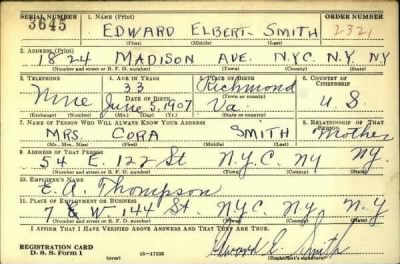 SERIAL NUMBER 1. NAME (Print) ORDER NUMBER
3645 EDWARD ELBERT SMITH 2321
(First) (Middle) (Last)
2. ADDRESS (Print)
1824 MADISON AVE. N.Y.C. N.Y. NY
(Number and street or R. F. D. number) (Town) (County) (State)
3. TELEPHONE 4. AGE IN YEARS 5. PLACE OF BIRTH 6. COUNTRY OF CITIZENSHIP
33 Richmond
DATE OF BIRTH (Town or county)
None June 5, 1907 Va. U.S.
(Exchange) (Number) (Mo.) (Day) (Yr.) (State or country)
7. NAME OF PERSON WHO WILL ALWAYS KNOW YOUR ADDRESS 8. RELATIONSHIP OF THAT PERSON
MRS. CORA SMITH Mother
(Mr., Mrs., Miss) (First) (Middle) (Last)
9. ADDRESS OF THAT PERSON
54 E. 122 St N.Y.C. NY NY.
(Number and street or R. F. D. number) (Town) (County) (State)
10. EMPLOYER'S NAME
E. A. Thompson
11. PLACE OF EMPLOYMENT OR BUSINESS
7 W-144 St. NYC. NY N.Y
(Number and street or R. F. D. number) (Town) (County) (State)
I AFFIRM THAT I HAVE VERIFIED ABOVE ANSWERS AND THAT THEY ARE TRUE.
REGISTRATION CARD Edward E. Smith
D. S. S. Form 1 16-17105 (over) (Registrant's signature)